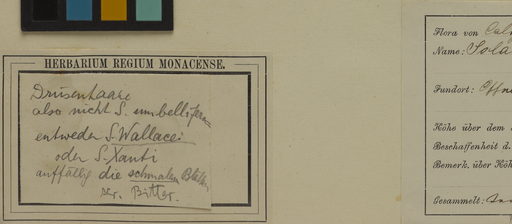 HERBARIUM REGIUM MONACENSE.
Drüsenhaare
also nicht S. umbellifera
entweder S. Wallacei
oder S. Xanti
auffällig die schmalen Blätter
Flora von
Name: Sola
Fundort:
Höhe über dem
Beschaffenheit d.
Bemerk. über Höh
Gesammelt: